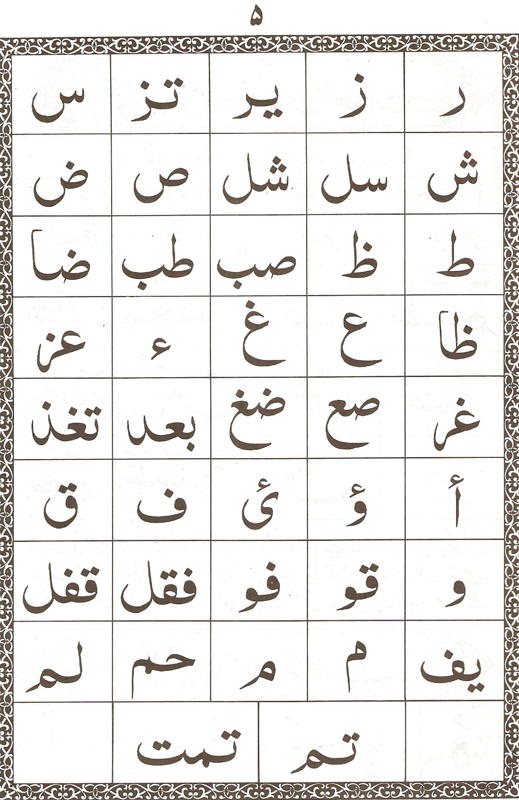 ۵
ر ز یر تز س
ش سل شل ص ض
ط ظ صب طب ضا
ظا ع غ ء عز
غر صع ضغ بعد تغذ
أ ؤ ئ ف ق
و قو فو فقل قفل
یف م م حم لم
تم تمت